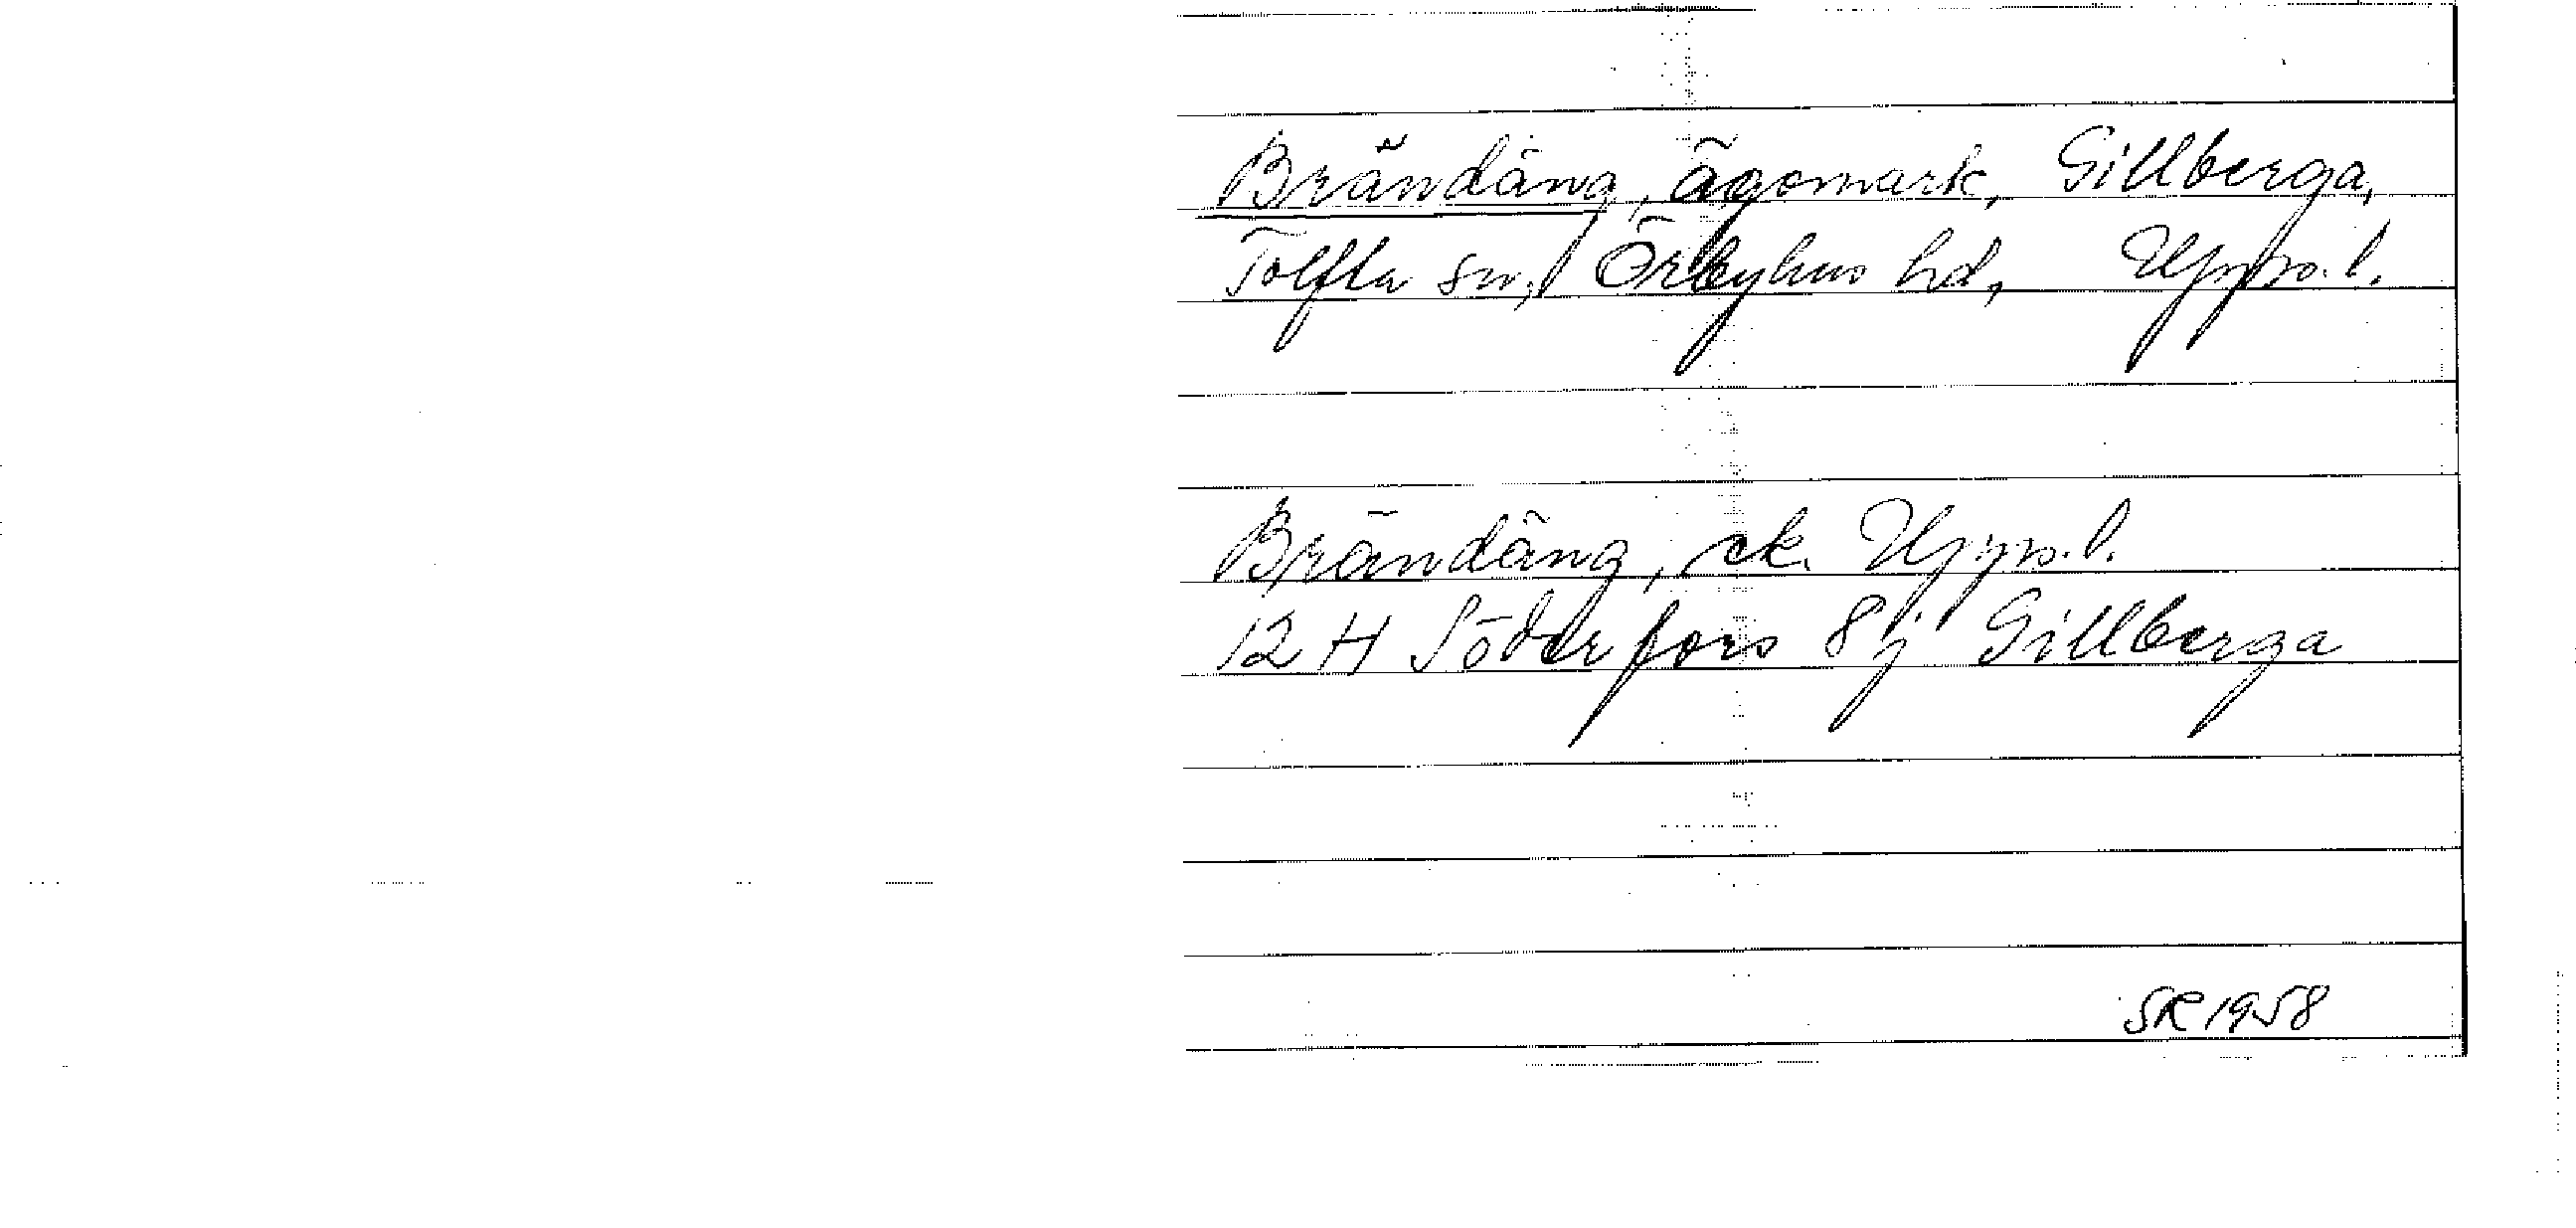 Brändäng, ägomark, Gillberga,
Tolfta sn, Örbyhus hd, Upps. l.
Brändäng, ek. Upps. l.
12 H Söderfors 8j Gillberga
SR 1958